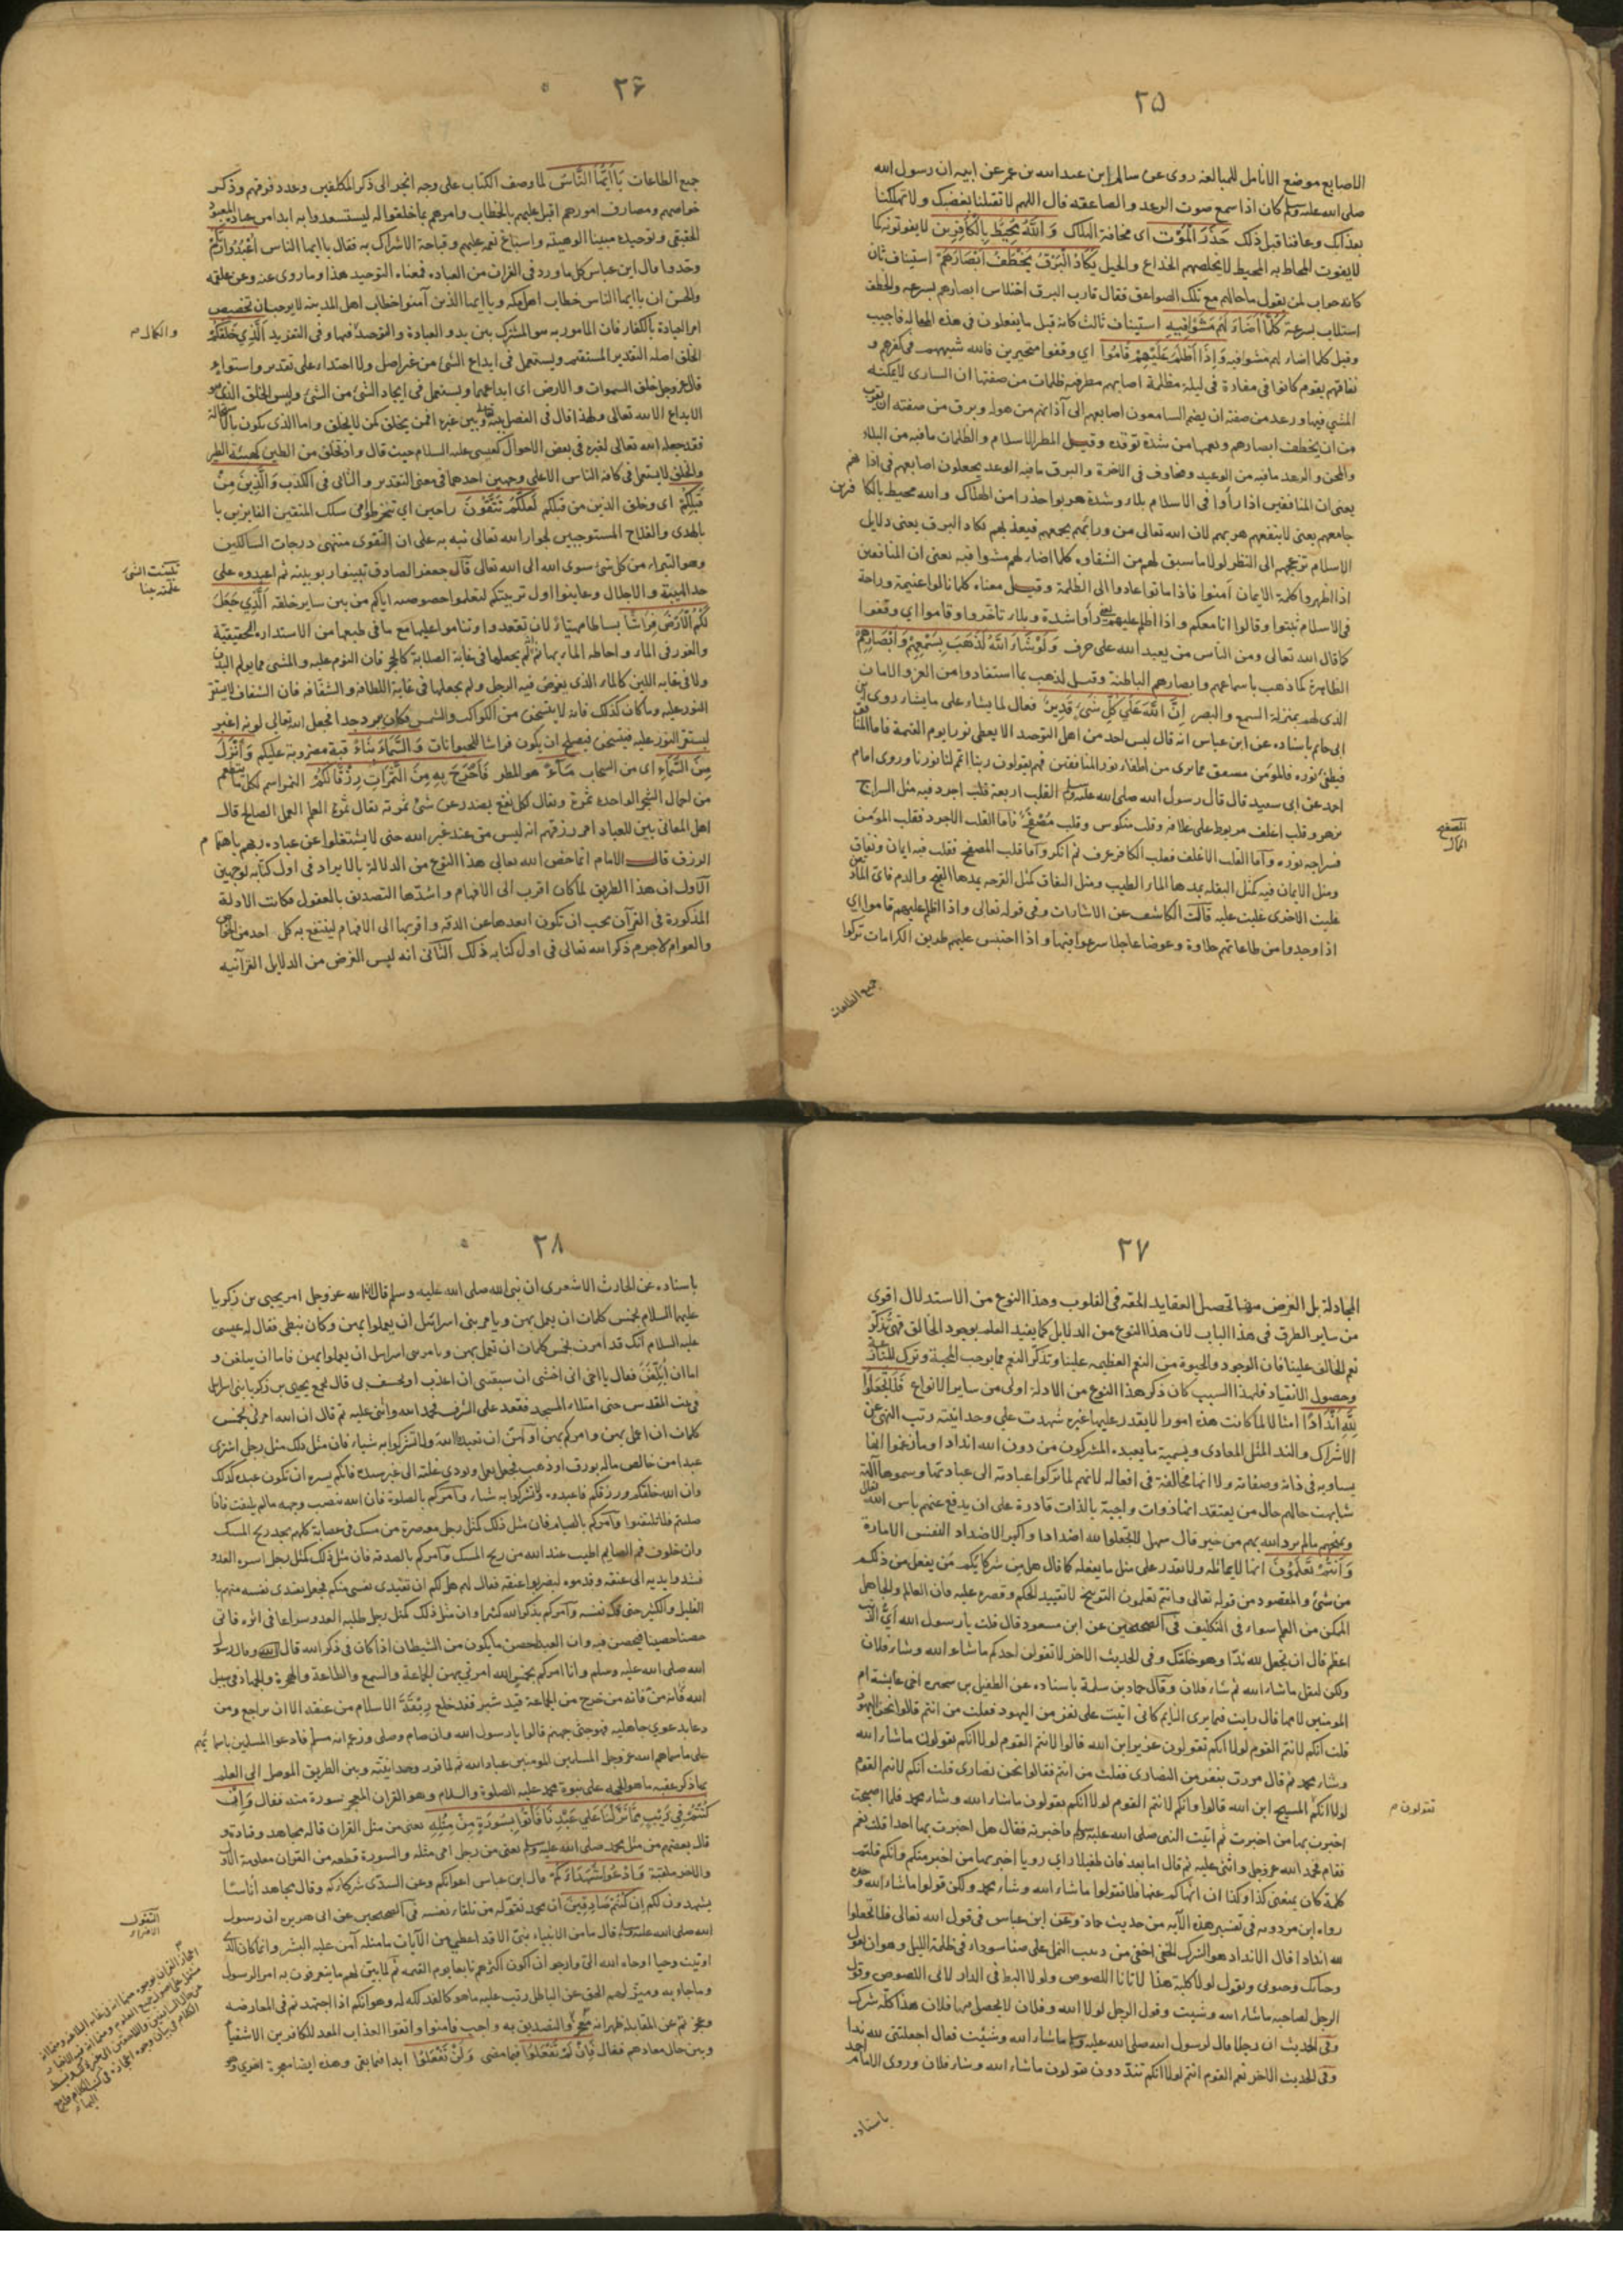 ٢٥
الاصابع موضع الانامل للمبالغة روى عن سالم ابن عبد الله بن عمر عن ابيه ان رسول الله
صلى الله عليه وسلم كان اذا سمع صوت الرعد والصاعقة قال اللهم لا تقتلنا بغضبك ولا تهلكنا
بعذابك وعافنا قبل ذلك حَذَرَ الْمَوْتِ اى مخافة الهلاك وَاللَّهُ مُحِيطٌ بِالْكَافِرِينَ لا يفوتونه كما
لا يفوت المحاط به المحيط لا يخلصهم الخداع والحيل يَكَادُ الْبَرْقُ يَخْطَفُ أَبْصَارَهُمْ استيناف ثان
كانه جواب لمن يقول ما حالهم مع تلك الصواعق فقال قارب البرق اختلاس ابصارهم بسرعة والخطف
استلاب بسرعة كُلَّمَا أَضَاءَ لَهُمْ مَشَوْا فِيهِ استيناف ثالث كانه قيل ما يفعلون فى هذه الحالة فاجيب
وقيل كلما اضاء لهم مشوا فيه وَإِذَا أَظْلَمَ عَلَيْهِمْ قَامُوا اي وقفوا متحيرين فالله شبههم فى كفرهم و
نفاقهم بقوم كانوا فى مفازة فى ليلة مظلمة اصابهم مطر فيه ظلمات من صفتها ان السارى لا يمكنه
المشي فيها ورعد من صفته ان يضم السامعون اصابعهم الى آذانهم من هوله وبرق من صفته ان يقرب
من ان يخطف ابصارهم ويعميها من شدة توقده وقيل المطر الاسلام والظلمات ما فيه من البلاء
والمحن والرعد ما فيه من الوعيد والمخاوف فى الآخرة والبرق ما فيه الوعد يجعلون اصابعهم فى اذانهم
يعنى ان المنافقين اذا رأوا فى الاسلام بلاء وشدة هربوا حذرا من الهلاك والله محيط بالكافرين
جامعهم يعنى لا ينفعهم هربهم لان الله تعالى من ورائهم يجمعهم فيعذبهم يكاد البرق يعنى دلايل
الاسلام تزعجهم الى النظر لولا ما سبق لهم من الشقاوة كلما اضاء لهم مشوا فيه يعنى ان المنافقين
اذا اظهروا كلمة الايمان آمنوا فاذا ماتوا عادوا الى الظلمة وقيل معناه كلما نالوا غنيمة وراحة
فى الاسلام ثبتوا وقالوا انا معكم واذا اظلم عليهم يعنى رأوا شدة وبلاء تأخروا وقاموا اي وقفوا
كما قال الله تعالى ومن الناس من يعبد الله على حرف وَلَوْ شَاءَ اللَّهُ لَذَهَبَ بِسَمْعِهِمْ وَأَبْصَارِهِمْ
الظاهرة كما ذهب باسماعهم وابصارهم الباطنة وقيل لذهب بما استفادوا من العز والامان
الذى لهم بمنزلة السمع والبصر إِنَّ اللَّهَ عَلَى كُلِّ شَيْءٍ قَدِيرٌ فعال لما يشاء على ما يشاء روى ابن
ابى حاتم باسناده عن ابن عباس انه قال ليس احد من اهل التوحيد الا يعطى نورا يوم القيمة فاما المنافق
فيطفئ نوره فالمؤمن مشفق مما يرى من اطفاء نور المنافقين فهم يقولون ربنا اتمم لنا نورنا وروى امام
احمد عن ابى سعيد قال قال رسول الله صلى الله عليه وسلم القلب اربعة قلب اجرد فيه مثل السراج
يزهر وقلب اغلف مربوط على غلافه وقلب منكوس وقلب مُصْفَحٌ فاما القلب الاجرد فقلب المؤمن
فسراجه نوره واما القلب الاغلف فقلب الكافر عرف ثم انكر واما قلب المصفح فقلب فيه ايمان ونفاق
ومثل الايمان فيه كمثل البقلة يمدها الماء الطيب ومثل النفاق كمثل القرحة يمدها القيح والدم فاى المادتين
غلبت الاخرى غلبت عليه قالت الكاشف عن الاشارات وفى قوله تعالى واذا اظلم عليهم قاموا اي
اذا وجدوا من طاعاتهم حلاوة وعوضا عاجلا سرعوا فيها واذا احتبس عليهم طريق الكرامات تركوا
جميع الطاعات
المصفح
الممال
٢٦
جميع الطاعات يَا أَيُّهَا النَّاسُ لما وصف الكتاب على وجه انجر الى ذكر المكلفين وعدد فرقهم وذكر
خواصهم ومصارف امورهم اقبل عليهم بالخطاب وامرهم بما خلقوا له ليستسعدوا به ابدا من عبادة المعبود
الحقيقى وتوحيده مبينا الوهيته واسباغ نعمه عليهم وقباحة الاشراك به فقال يا ايها الناس اعْبُدُوا رَبَّكُمُ
وحدوا قال ابن عباس كل ما ورد فى القرآن من العبادة فمعناه التوحيد هذا وما روى عنه وعن علقمة
والحسن ان يا ايها الناس خطاب اهل مكة ويا ايها الذين آمنوا خطاب اهل المدينة لا يوجب ان تخصيص
امر العبادة بالكفار فان المامور به هو المشترك بين بدو العبادة والتوحيد فيها وفى التفريد الَّذِي خَلَقَكُمْ
الخلق اصله التقدير المستقيم ويستعمل فى ابداع الشئ من غير اصل ولا احتذاء على تقدير واستواء
قال عز وجل خلق السموات والارض اى ابدعهما ويستعمل فى ايجاد الشئ من الشئ وليس الخلق الذى هو
الابداع الا لله تعالى ولهذا قال فى الفصل بينه تعالى وبين غيره افمن يخلق كمن لا يخلق واما الذى يكون بالاستحالة
فقد جعله الله تعالى لغيره فى بعض الاحوال كعيسى عليه السلام حيث قال واذ تخلق من الطين كهيئة الطير
والخلق لا يستعمل فى كافة الناس الا على وجهين احدهما فى معنى التقدير والثانى فى الكذب وَالَّذِينَ مِنْ
قَبْلِكُمْ اى وخلق الذين من قبلكم لَعَلَّكُمْ تَتَّقُونَ راجين اي تنخرطوا فى سلك المتقين الفايزين با
بالهدى والفلاح المستوجبين لجوار الله تعالى نبه به على ان التقوى منتهى درجات السالكين
وهو التبراء من كل شئ سوى الله الى الله تعالى قال جعفر الصادق تبينوا ربوبيته ثم اعبدوه على
حد الهيبة والاجلال وعاينوا اول تربيتكم لتعلموا خصوصيته اياكم من بين ساير خلقه الَّذِي جَعَلَ
لَكُمُ الْأَرْضَ فِرَاشًا بساطا مهيئا لان تقعدوا وتناموا عليها مع ما فى طبعها من الاستدارة الحقيقية
والغور فى الماء واحاطة الماء بها ثم لم يجعلها فى غاية الصلابة كالحجر فان النوم عليه والمشى مما يولم البدن
ولا فى غاية اللين كالماء الذى يغوص فيه الرجل ولم يجعلها فى غاية اللطافة والشفافة فان الشفاف لا يستقر
النور عليه وما كان كذلك فانه لا يتسخن من الكواكب والشمس فكان يبرد جدا فجعل الله تعالى لونه اغبر
ليستقر النور عليه فيتسخن فيصلح ان يكون فراشا للحيوانات وَالسَّمَاءَ بِنَاءً قبة مضروبة عليكم وَأَنْزَلَ
مِنَ السَّمَاءِ اى من السحاب مَاءً هو المطر فَأَخْرَجَ بِهِ مِنَ الثَّمَرَاتِ رِزْقًا لَكُمْ الثمر اسم لكل ما يتطعم
من احمال الشجر الواحدة ثمرة ويقال لكل نفع يصدر عن شئ ثمرته يقال ثمرة العلم العمل الصالح قال
اهل المعانى بين للعباد امر رزقهم انه ليس من عند غير الله حتى لا يشتغلوا عن عبادة ربهم باهتمام
الرزق قال الامام انما خص الله تعالى هذا النوع من الدلالة بالايراد فى اول كتابه لوجهين
الاول ان هذا الطريق لما كان اقرب الى الافهام واشدها التصديق بالعقول فكانت الادلة
المذكورة فى القرآن يجب ان تكون ابعدها عن الدقة واقربها الى الافهام لينتفع به كل احد من الخواص
والعوام لاجرم ذكر الله تعالى فى اول كتابه ذلك الثانى انه ليس الغرض من الدلايل القرآنيه
والكمال م
٢٧
المجادلة بل الغرض منها تحصيل العقايد الحقة فى القلوب وهذا النوع من الاستدلال اقوى
من ساير الطرق فى هذا الباب لان هذا النوع من الدلايل كما يفيد العلم بوجود الخالق فهى تُذَكِّرُ
نعم الخالق علينا فان الوجود والحيوة من النعم العظيمة علينا وتذكر النعم مما يوجب المحبة وترك المنازعة
وحصول الانقياد فلهذا السبب كان ذكر هذا النوع من الادلة اولى من ساير الانواع فَلَا تَجْعَلُوا
لِلَّهِ أَنْدَادًا امثالا لما كانت هذه امورا لا يقدر عليها غيره شهدت على وحدانيته رتب النهى عن
الاشراك والند المثل المعادى وتسمية ما يعبده المشركون من دون الله اندادا وما زعموا انها
يساويه فى ذاته وصفاته ولا انها مخالفة فى افعاله لانهم لما تركوا عبادته الى عبادتها وسموها آلهة
شابهت حالهم حال من يعتقد انها ذوات واجبة بالذات قادرة على ان يدفع عنهم باس الله تعالى
ويمنحهم ما لم يرد الله بهم من خير قال سهل لا تجعلوا لله اضدادا واكبر الاضداد النفس الامارة
وَأَنْتُمْ تَعْلَمُونَ انها لا يماثله ولا تقدر على مثل ما يفعله كما قال هل من شركايكم مَن يفعل من ذلكم
من شئ والمقصود من قوله تعالى وانتم تعلمون التوبيخ لا تقييد الحكم وقصره عليه فان العالم والجاهل
المتمكن من العلم سواء فى التكليف فى الصحيحين عن ابن مسعود قال قلت يا رسول الله أَيُّ الذنب
اعظم قال ان تجعل لله ندا وهو خلقك وفى الحديث الآخر لا تقولن احدكم ما شاء الله وشاء فلان
ولكن ليقل ما شاء الله ثم شاء فلان وقال حماد بن سلمة باسناده عن الطفيل بن سخبرة اخى عايشة ام
المومنين لامها قال رايت فيما يرى النايم كانى اتيت على نفر من اليهود فقلت من انتم قالوا نحن اليهود
قلت انكم لانتم القوم لولا انكم تقولون عزير ابن الله قالوا لانتم القوم لولا انكم تقولون ما شاء الله
وشاء محمد ثم قال مررت بنفر من النصارى فقلت من انتم فقالوا نحن نصارى قلت انكم لانتم القوم
لولا انكم المسيح ابن الله قالوا وانكم لانتم القوم لولا انكم تقولون ما شاء الله وشاء محمد فلما اصبحت
اخبرت بها من اخبرت ثم اتيت النبى صلى الله عليه وسلم فاخبرته فقال هل اخبرت بها احدا قلت نعم
فقام فحمد الله عز وجل واثنى عليه ثم قال اما بعد فان طفيلا راي رويا اخبر بها من اخبر منكم وانكم قلتم
كلمة كان يمنعنى كذا وكذا ان انهاكم عنها فلا تقولوا ما شاء الله وشاء محمد ولكن قولوا ما شاء الله وحده
رواه ابن مردويه فى تفسير هذه الآية من حديث حماد وعن ابن عباس فى قول الله تعالى فلا تجعلوا
لله اندادا قال الانداد هو الشرك الخفى اخفى من دبيب النمل على صفا سوداء فى ظلمة الليل وهو ان يقول
وحياتك وحيوتى ويقول لولا كلبة هذا لاتانا اللصوص ولولا البط فى الدار لاتى اللصوص وقول
الرجل لصاحبه ما شاء الله وشيت وقول الرجل لولا الله وفلان لا تجعل فيها فلان هذا كله شرك
وفى الحديث ان رجلا قال لرسول الله صلى الله عليه وسلم ما شاء الله وشئت فقال اجعلتنى لله ندا
وفى الحديث الآخر نعم القوم انتم لولا انكم تنددون تقولون ما شاء الله وشاء فلان وروى الامام احمد
باسناده
تقولون م
٢٨
باسناده عن الحارث الاشعرى ان نبى الله صلى الله عليه وسلم قال ان الله عز وجل امر يحيى بن زكريا
عليهما السلام بخمس كلمات ان يعمل بهن ويامر بنى اسرائيل ان يعملوا بهن وكان يبطى فقال له عيسى
عليه السلام انك قد امرت بخمس كلمات ان تعمل بهن وتامر بنى اسرايل ان يعملوا بهن فاما ان يبلغن و
اما ان أُبَلِّغَنَّ فقال يا اخى انى اخشى ان سبقتنى ان اعذب او يخسف بى قال فجمع يحيى بن زكريا بنى اسرائيل
فى بيت المقدس حتى امتلاء المسجد فقعد على الشرف فحمد الله واثنى عليه ثم قال ان الله امرنى بخمس
كلمات ان اعمل بهن وامركم بهن
وان الله خلقكم ورزقكم فاعبدوه ولا تشركوا به شياء وآمركم بالصلوة فان الله ينصب وجهه ما لم يلتفت فاذا
صليتم فلا تلتفتوا وآمركم بالصيام فان مثل ذلك كمثل رجل معه صرة من مسك فى عصابة كلهم يجد ريح المسك
وان خلوف فم الصايم اطيب عند الله من ريح المسك وآمركم بالصدقة فان مثل ذلك كمثل رجل اسره العدو
فشدوا يديه الى عنقه وقدموه ليضربوا عنقه فقال لهم هل لكم ان تفتدى نفسى منكم فجعل يفتدى نفسه منهم با
القليل والكثير حتى فك نفسه وآمركم بذكر الله كثيرا وان مثل ذلك كمثل رجل طلبه العدو سراعا فى اثره فاتى
حصنا حصينا فتحصن فيه وان العبد احصن ما يكون من الشيطان اذا كان فى ذكر الله قال وقال رسول
الله صلى الله عليه وسلم وانا امركم بخمس الله امرنى بهن الجماعة والسمع والطاعة والهجرة والجهاد فى سبيل
الله فانه من خرج من الجماعة قيد شبر فقد خلع رِبْقَةَ الاسلام من عنقه الا ان يراجع ومن
دعا بدعوي جاهلية فهو جثى جهنم قالوا يا رسول الله وان صام وصلى وزعم انه مسلم فادعوا المسلمين باسمائهم
على ما سماهم الله عز وجل المسلمين المومنين عباد الله ثم لما قرر وحدانيته وبين الطريق الموصل الى العلم
بها ذكر عقيبه ما هو الحجة على نبوة محمد عليه الصلوة والسلام وهو القران المعجز بسورة منه فقال وَإِنْ
كُنْتُمْ فِي رَيْبٍ مِمَّا نَزَّلْنَا عَلَى عَبْدِنَا فَأْتُوا بِسُورَةٍ مِنْ مِثْلِهِ يعنى من مثل القران قاله مجاهد وقتادة و
قال بعضهم من مثل محمد صلى الله عليه وسلم يعنى من رجل امى مثله والسورة قطعة من القران معلومة الاول
والآخر وَادْعُوا شُهَدَاءَكُمْ قال ابن عباس اعوانكم وعن السدى شركاءكم وقال مجاهد أناسًا
يشهدون لكم إِنْ كُنْتُمْ صَادِقِينَ ان محمد تقوله من تلقاء نفسه فى الصحيحين عن ابى هريره ان رسول
الله صلى الله عليه وسلم قال ما من الانبياء نبى الا قد اعطى من الآيات ما مثله آمن عليه البشر وانما كان الذى
اوتيت وحيا اوحاه الله الى وارجو ان اكون اكثرهم تابعا يوم القيمة ثم لما بين لهم ما يتعرفون به امر الرسول
وما جاء به وميز لهم الحق عن الباطل رتب عليه ما هو كالفذلكة له وهو انكم اذا اجتهدتم فى المعارضة
وعجزتم عن المقابلة ظهر انه معجز والتصديق به واجب فامنوا واتقوا العذاب المعد للكافرين الاشقياء
وبين حال معادهم فقال فَإِنْ لَمْ تَفْعَلُوا فيما مضى وَلَنْ تَفْعَلُوا ابدا فيما بقى وهذه ايضا معجزة اخرى وهو
التقول
الافتراء